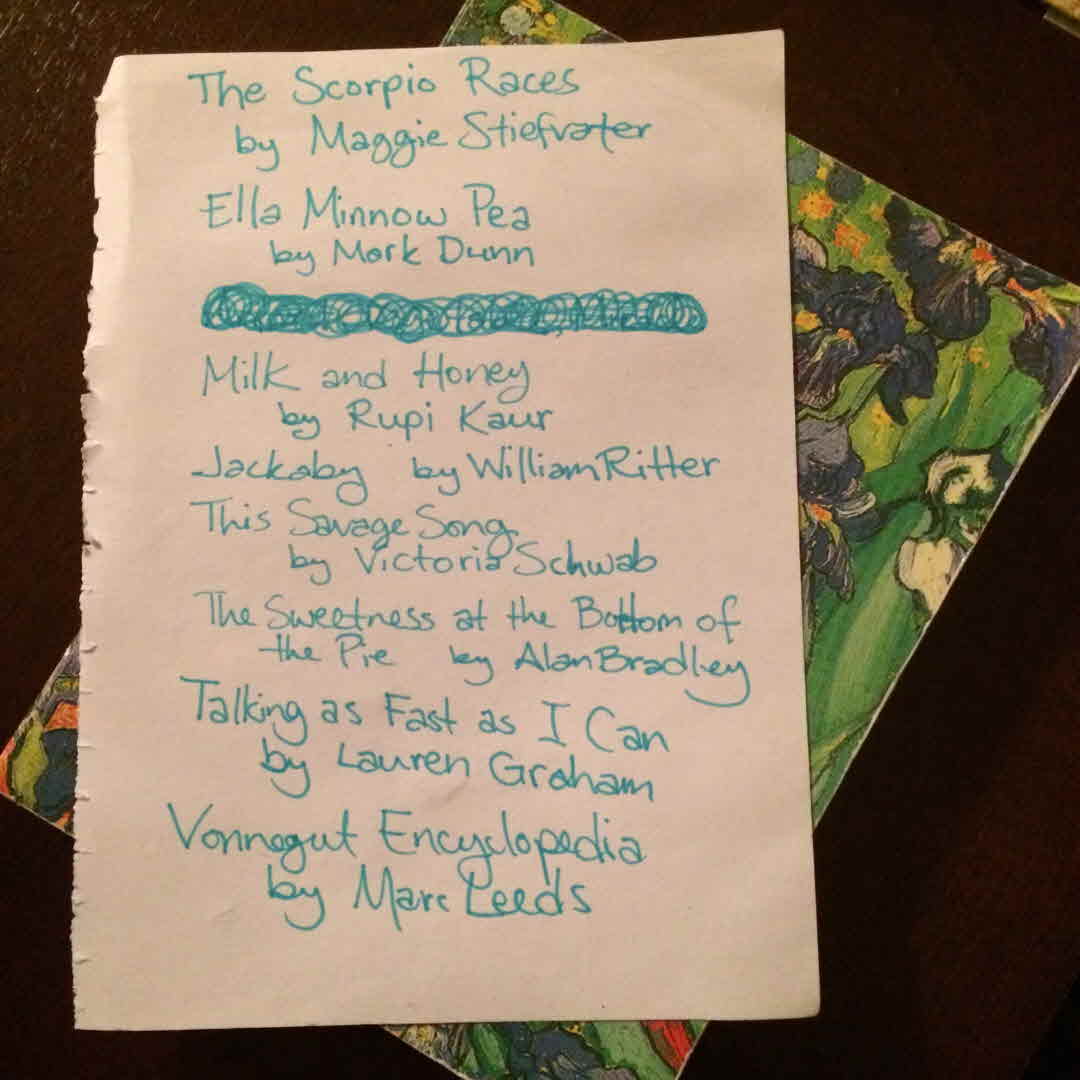 The Scorpio Races
by Maggie Stiefvater
Ella Minnow Pea
by Mark Dunn
Milk and Honey
by Rupi Kaur
Jackaby by William Ritter
This Savage Song
by Victoria Schwab
The Sweetness at the Bottom of
the Pie by Alan Bradley
Talking as Fast as I Can
by Lauren Graham
Vonnegut Encyclopedia
by Marc Leeds